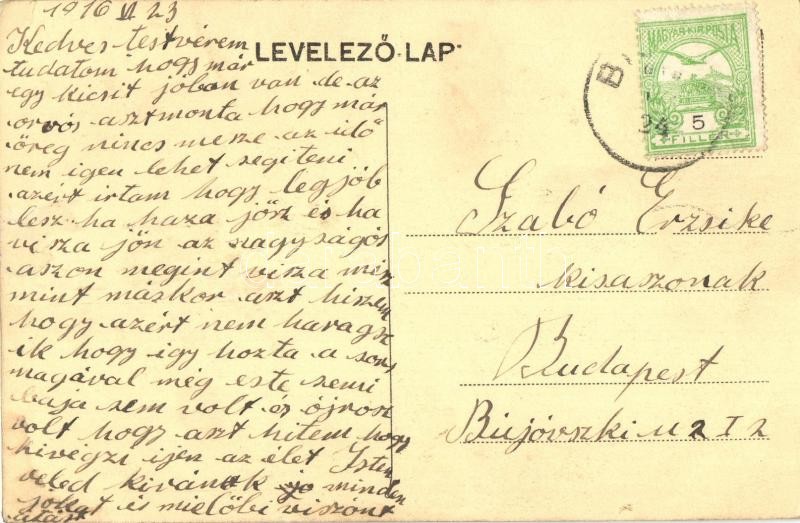 1916 VI 23
Kedves testvérem
tudatom hogy már
egy kicsit jóban van de az
orvós asztmonta hogy már
öreg nincs mesze az idö
nem igen lehet segiteni
azért irtam hogy legjób
lesz ha haza jösz és ha
visza jön az nagyságós
aszon megint visza mész
mint máskor azt hiszem
hogy azért nem haragsz
ik hogy igy hozta a sors
magával még este semi
baja sem volt és rosz
volt hogy azt hitem hogy
kivégzi az élet Isten
veled kivánok jo minden
jokat és mielöbi viszont
látást
LEVELEZŐ-LAP
MAGYAR KIR. POSTA
5
FILLER
24
Szabó Erzsike
kisaszonak
Budapest
Bujóvszki u 2 I 2